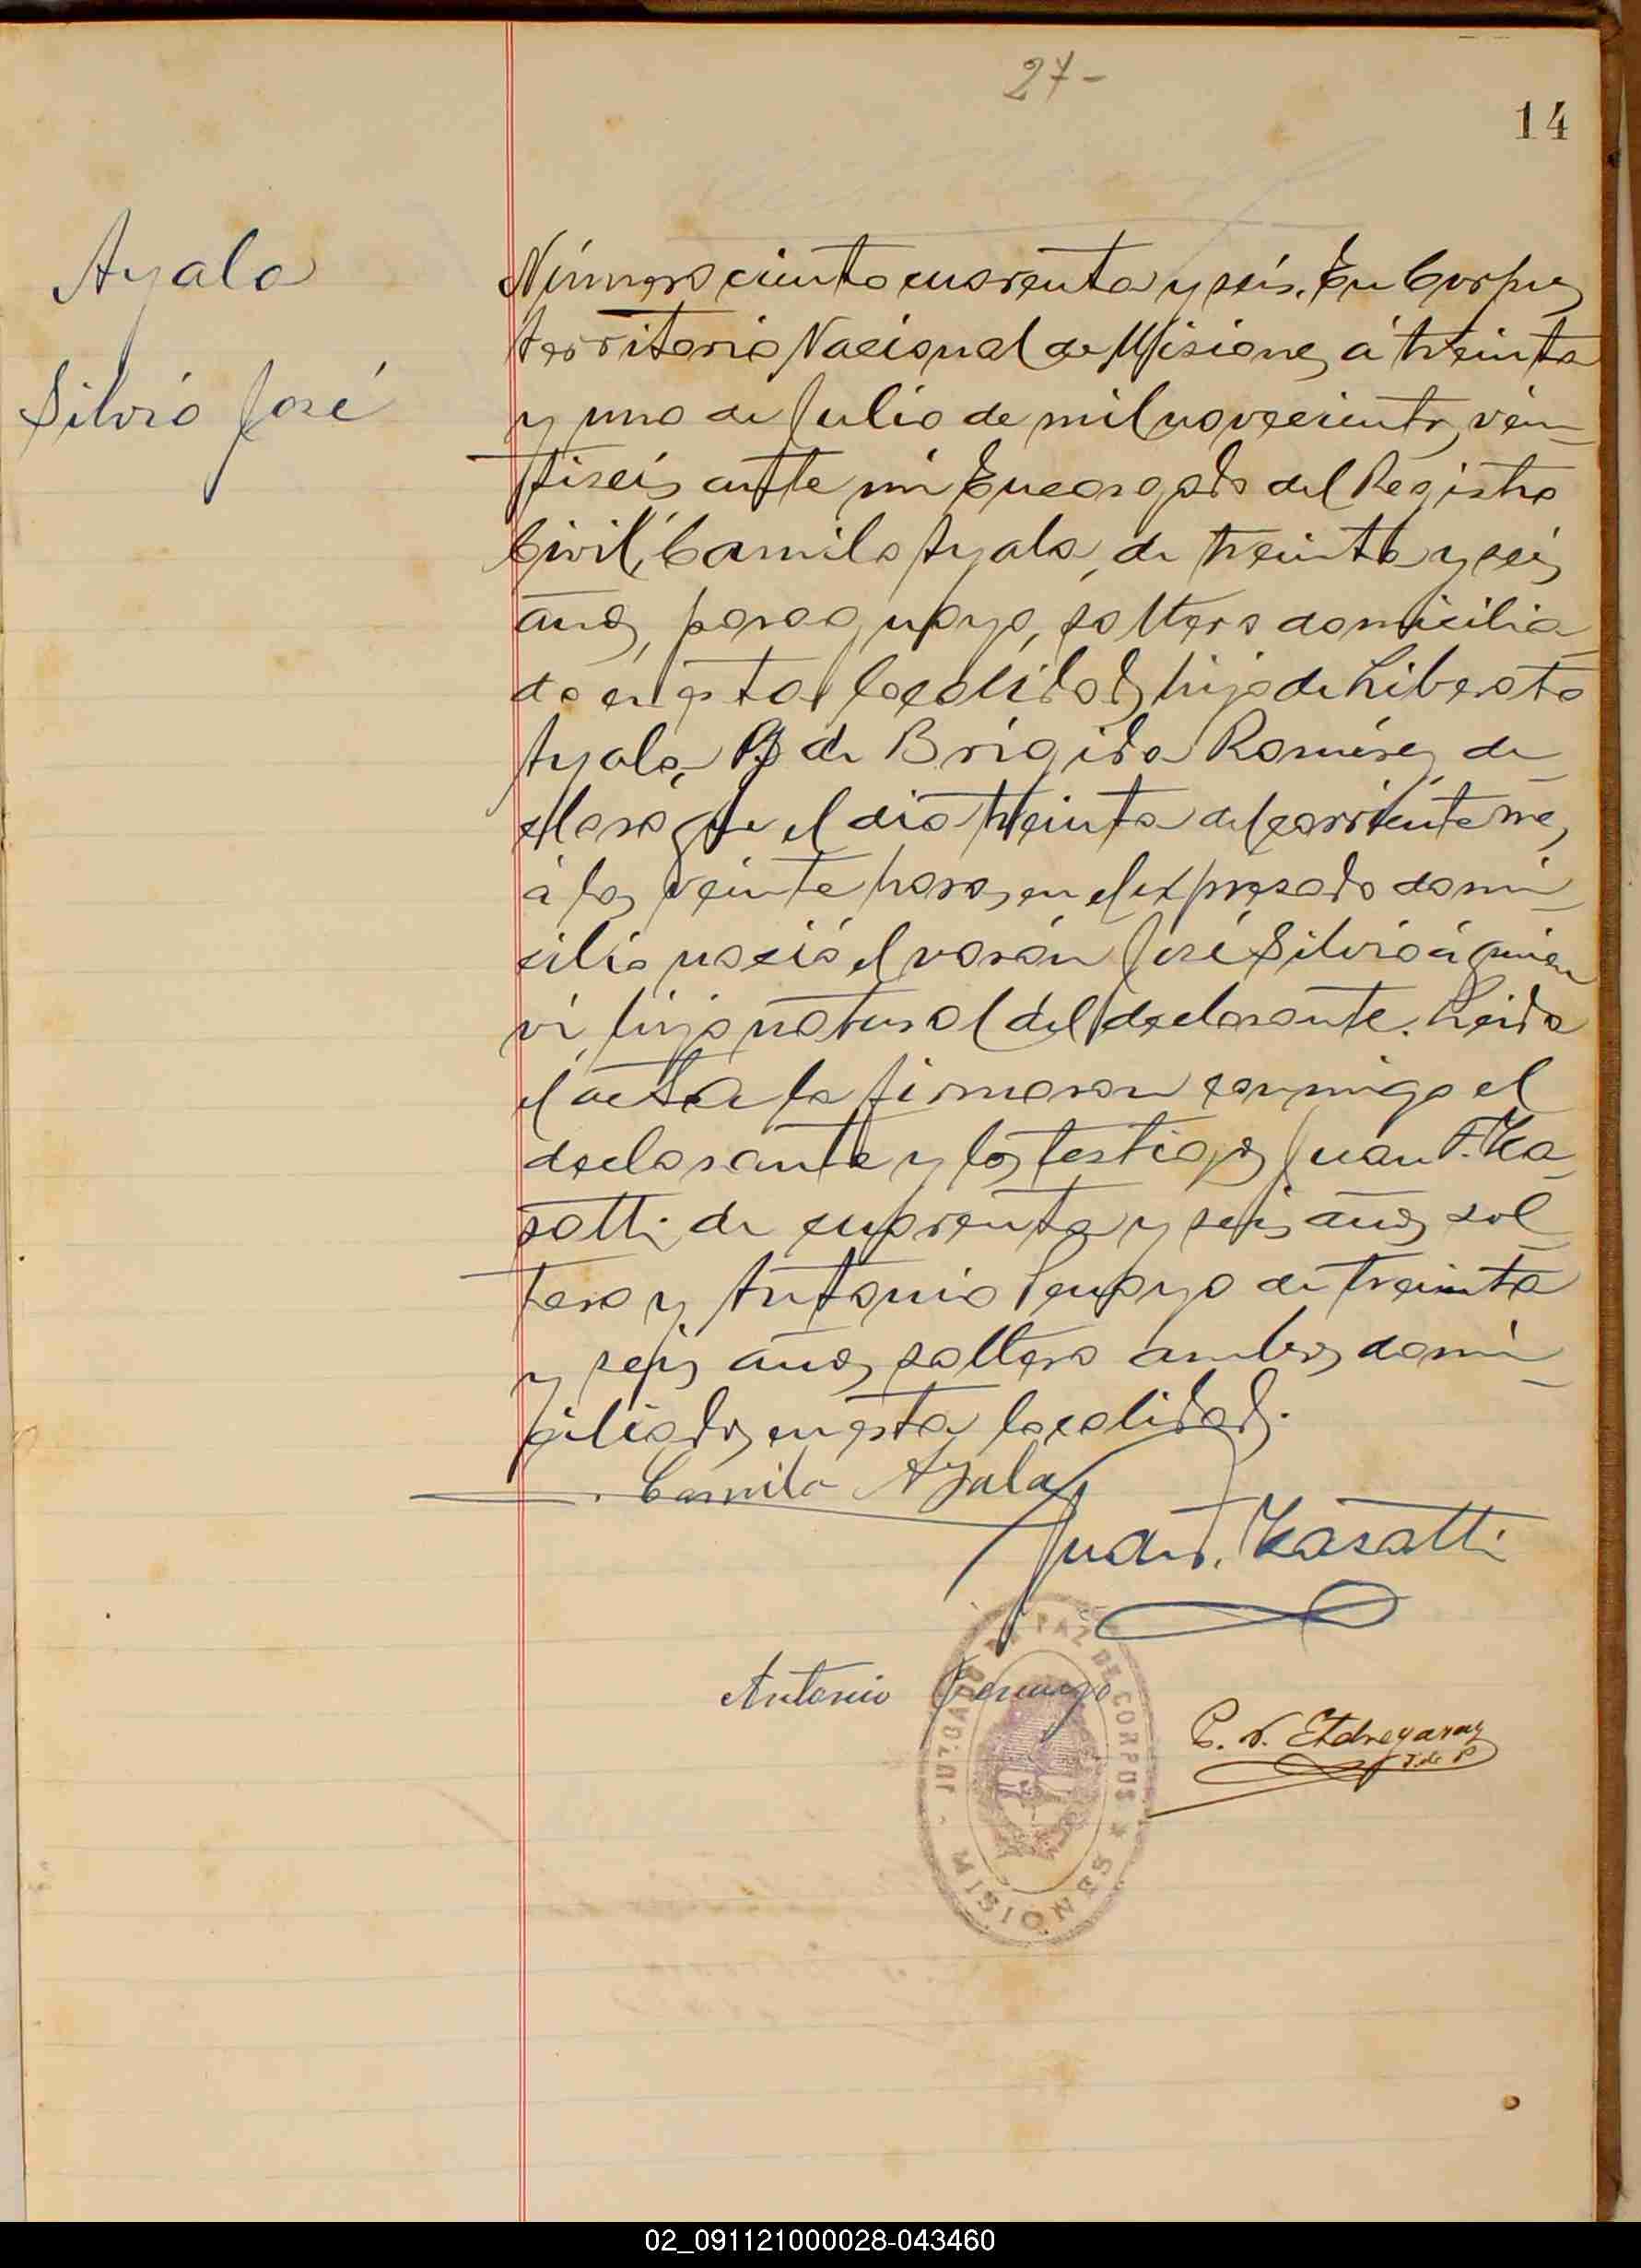 27-
14
Ayala
Silvio José
Número ciento cuarenta y seis. En Corpus
territorio Nacional de Misiones, á treinta
y uno de Julio de mil novecientos, vein-
tiseis ante mi Encargado del Registro
Civil, Camilo Ayala, de treinta y seis
años, paraguayo, soltero domicilia-
do en esta localidad, hijo de Liberato
Ayala y de Brigida Romires, de-
claro que el dia treinta del corriente mes,
á las veinte horas, en el expresado domi-
cilio nació el varón José Silvio á quien
vi, hijo natural del declarante. Leida
el acta la firmaron conmigo el
declarante y los testigos Juan F. Ka-
satti de cuarenta y seis años sol-
tero y Antonio Penayo de treinta
y seis años, soltero ambos domi-
ciliados en esta localidad.
Camilo Ayala
Juan F. Kasatti
Antonio Penayo
C. N. Etchegaray
J. de P
JUZGADO DE PAZ DE CORPUS
MISIONES
02_091121000028-043460